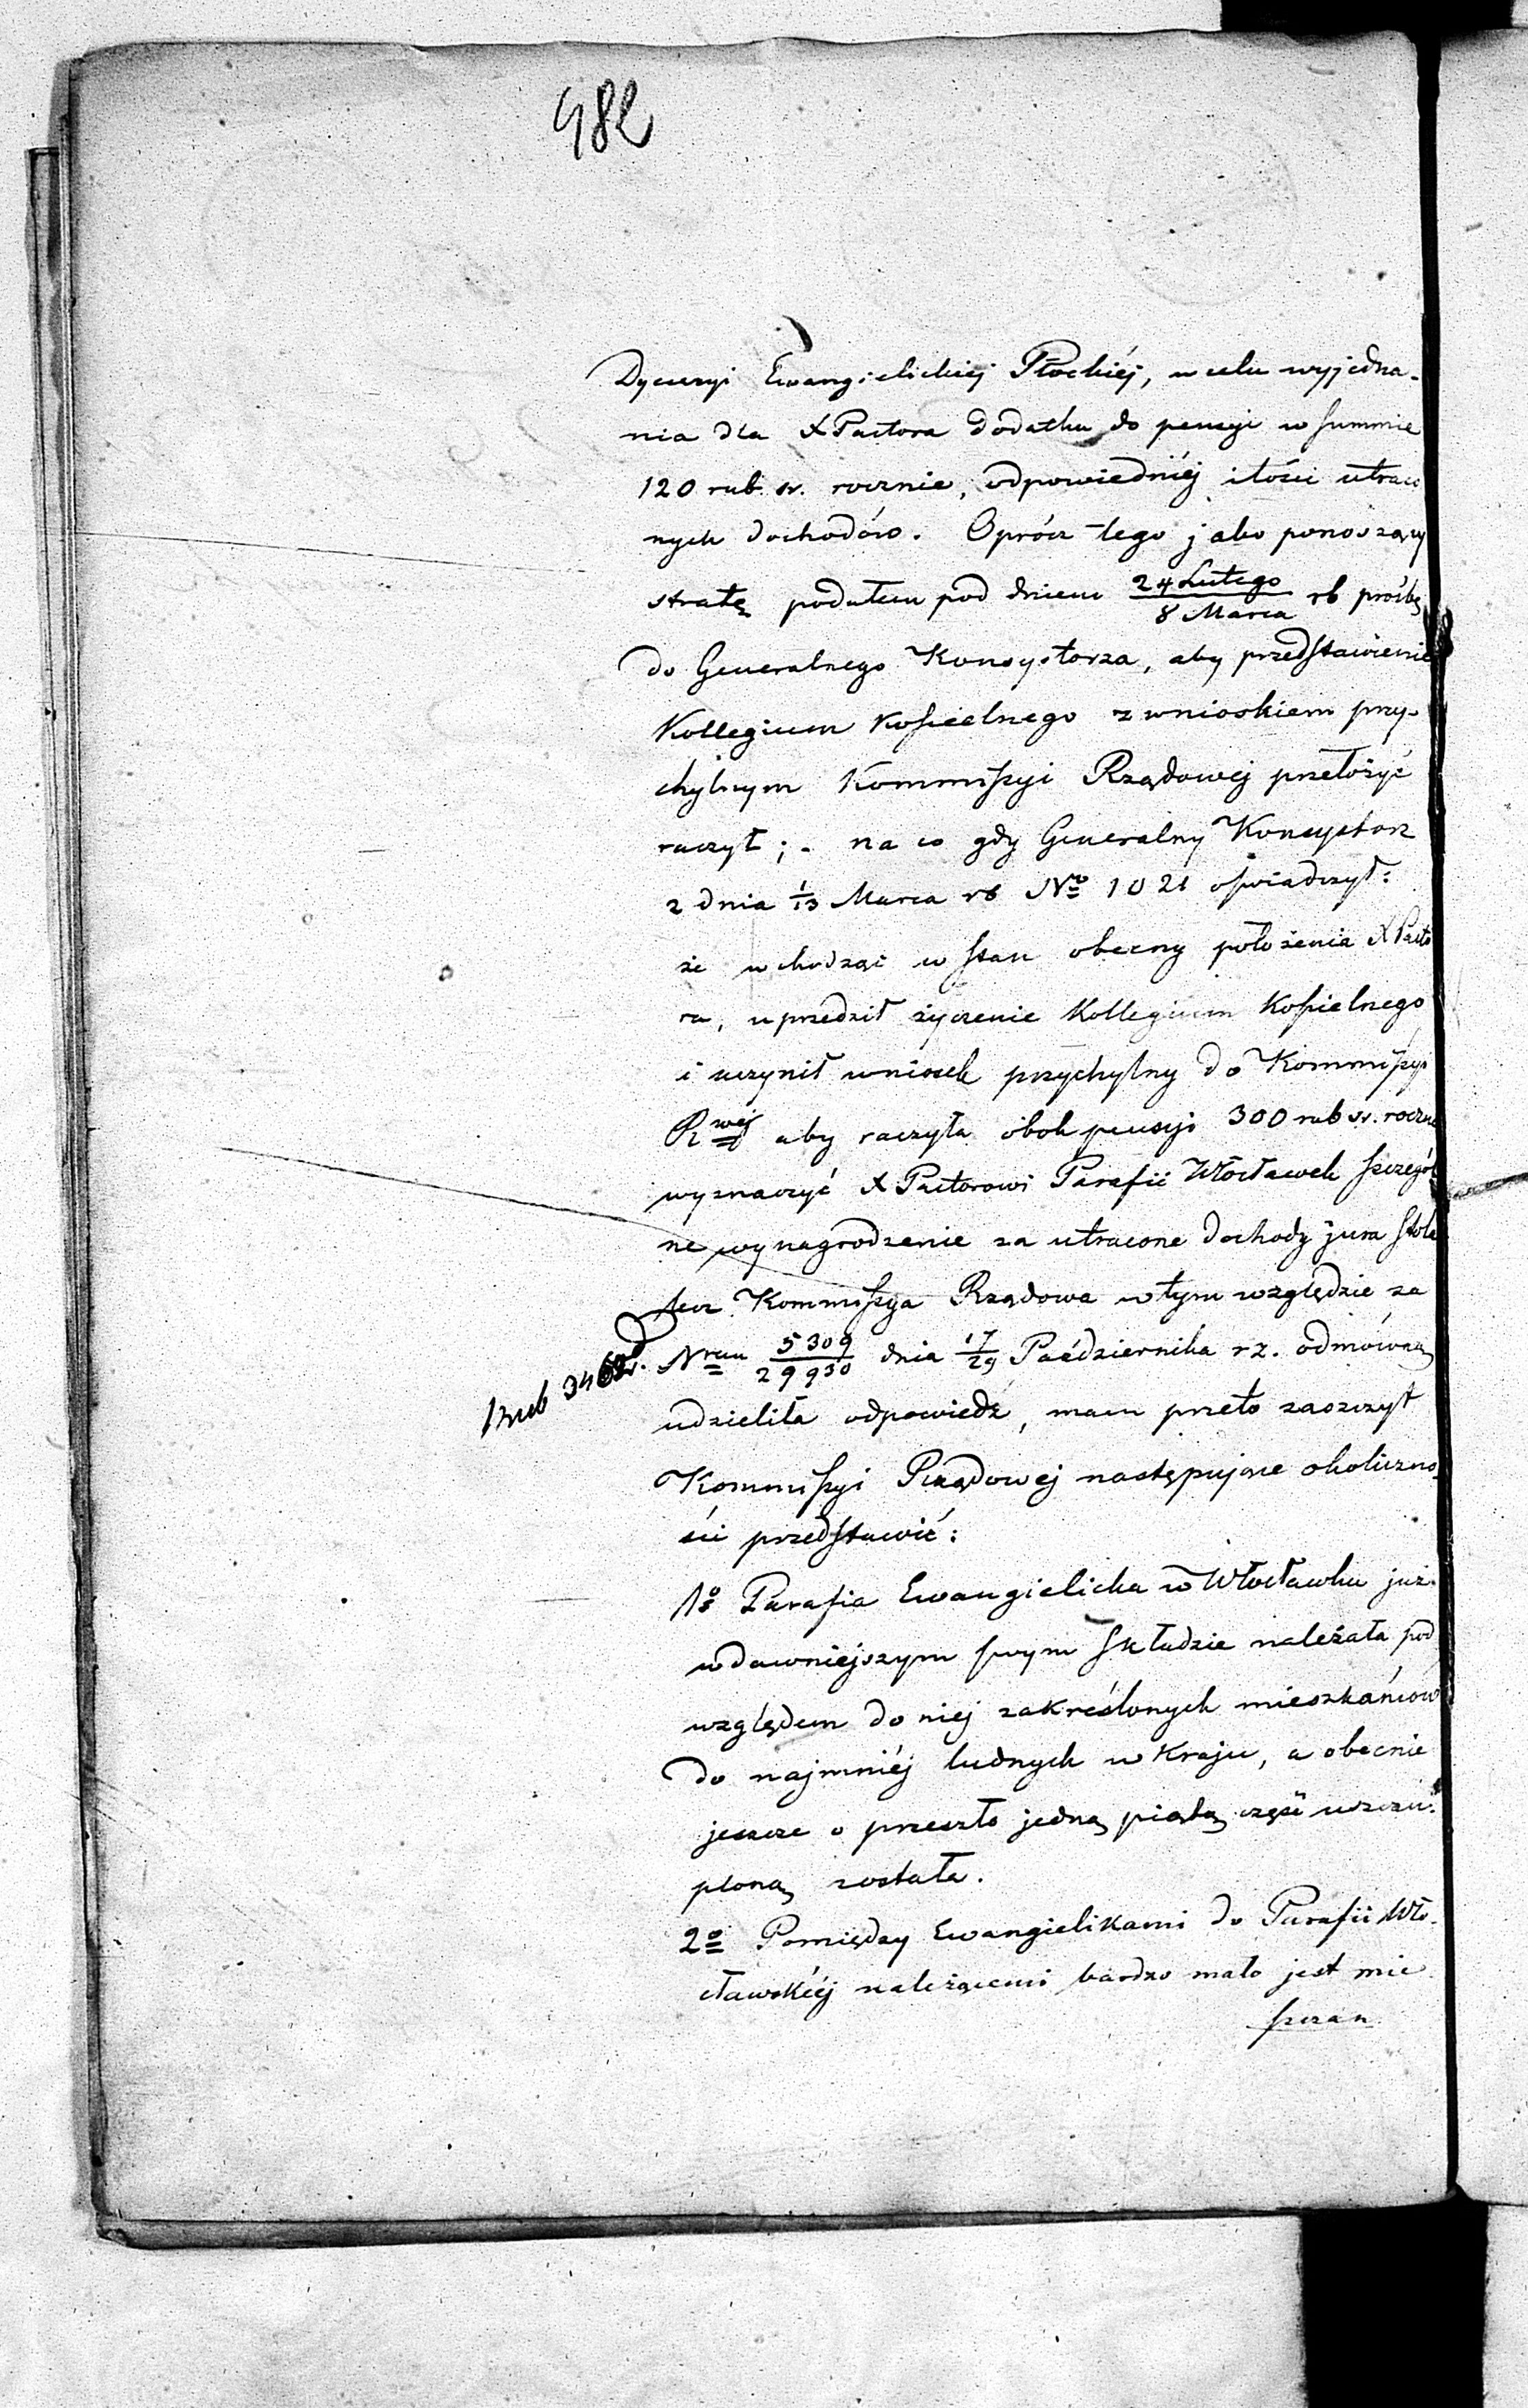 482
Dyecezyi Ewangielickiej Płockiéj, w celu wyjedna-
nia dla X Pastora dodatku do pensyi w summie
120 rub. sr. rocznie, odpowiedniéj ilości utraco
nych dochodów. Oprócz tego jako ponoszący
stratę podałem pod dniem 24 Lutego / 8 Marca rb prośbę
do Generalnego Konsystorza, aby przedstawienie
Kollegium Kościelnego z wnioskiem przy-
chylnym Kommissyi Rządowéj przełożyć
raczył; - na co gdy Generalny Konsystorz
z dnia 1/13 Marca rb No 1021 oświadczył:
że wchodząc w stan obecny położenia X Pasto
ra, uprzedził życzenie Kollegium Kościelnego
i uczynił wniosek przychylny do Kommissyi
Rwéj aby raczyła obok pensyi 300 rub sr. rocznie
wyznaczyć X Pastorowi Parafii Włocławek szczegól
ne wynagrodzenie za utracone dochody jura stolae
lecz Kommissya Rządowa w tym względzie za
Nrem 5309 / 29930 dnia 17/29 Października rz. odmówną
udzieliła odpowiedź, mam przeto zaszczyt
Kommissyi Rządowej następujące okoliczno-
ści przedstawić:
1o Parafia Ewangielicka w Włocławku już
w dawniejszym swym składzie należała pod
względem do niej zakreślonych mieszkańców
do najmniéj ludnych w Kraju, a obecnie
jeszcze o przeszło jedną piątą część uszczu-
ploną została.
2o Pomiędzy Ewangielikami do Parafii Wło-
cławskiéj należącemi bardzo mało jest mie
szczan